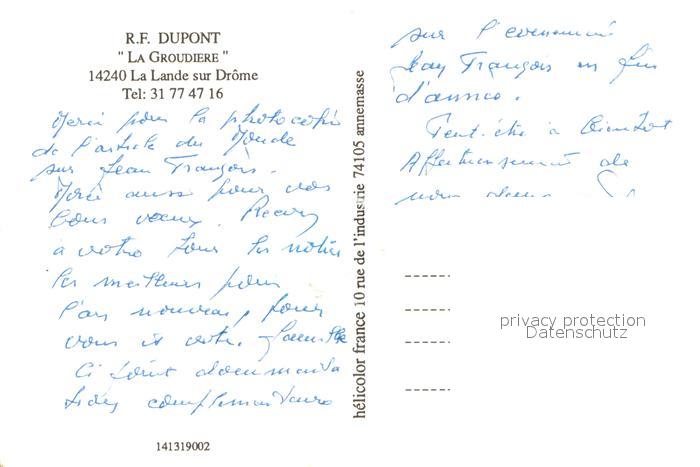 R.F. DUPONT
" LA GROUDIERE "
14240 La Lande sur Drôme
Tel: 31 77 47 16
Merci pour la photocopie
de l'article du Monde
sur Jean François.
Merci aussi pour vos
bons voeux. Recevez
à votre tour les nôtres
les meilleurs pour
l'an nouveau, pour
vous et votre famille
Ci joint documents
complémentaires
141319002
hélicolor france 10 rue de l'industrie 74105 annemasse
sur l'evenement
Jean François en fin
d'année.
Peut-être à bientôt
Affectueusement de
nous deux
privacy protection
Datenschutz